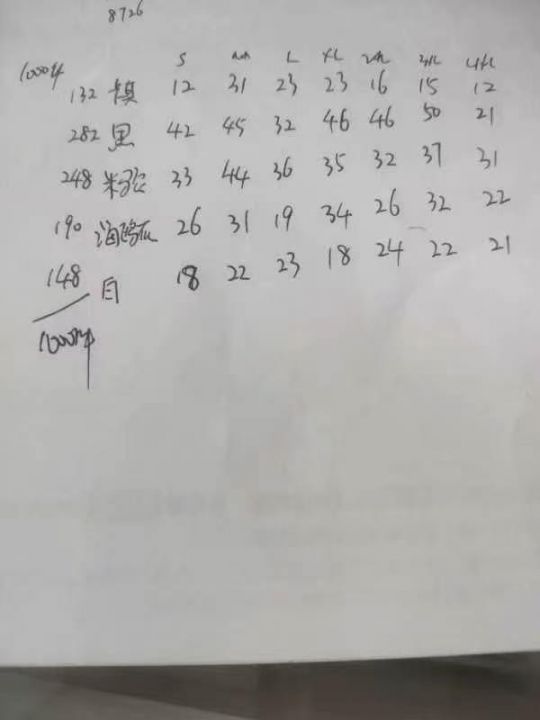 8726
S M L XL 2XL 3XL 4XL
1000件
132 棋 12 31 23 23 16 15 12
282 黑 42 45 32 46 46 50 21
248 米杏 33 44 36 35 32 37 31
190 26 31 19 34 26 32 22
148 白 18 22 23 18 24 22 21
1000件